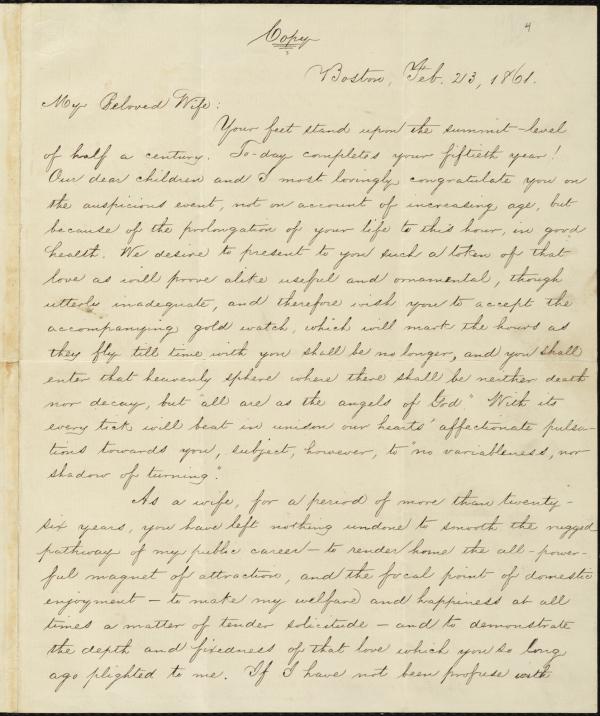 4
Copy
Boston, Feb. 23, 1861.
My Beloved Wife:
Your feet stand upon the summit-level
of half a century. To-day completes your fiftieth year!
Our dear children and I most lovingly congratulate you on
the auspicious event, not on account of increasing age, but
because of the prolongation of your life to this hour, in good
health. We desire to present to you such a token of that
love as will prove alike useful and ornamental, though
utterly inadequate, and therefore wish you to accept the
accompanying gold watch, which will mark the hours as
they fly till time with you shall be no longer, and you shall
enter that heavenly sphere where there shall be neither death
nor decay, but "all are as the angels of God." With its
every tick will beat in unison our hearts' affectionate pulsa-
tions towards you, subject, however, to "no variableness, nor
shadow of turning."
As a wife, for a period of more than twenty-
six years, you have left nothing undone to smooth the rugged
pathway of my public career — to render home the all-power-
ful magnet of attraction, and the focal point of domestic
enjoyment — to make my welfare and happiness at all
times a matter of tender solicitude — and to demonstrate
the depth and fixedness of that love which you so long
ago plighted to me. If I have not been profuse with